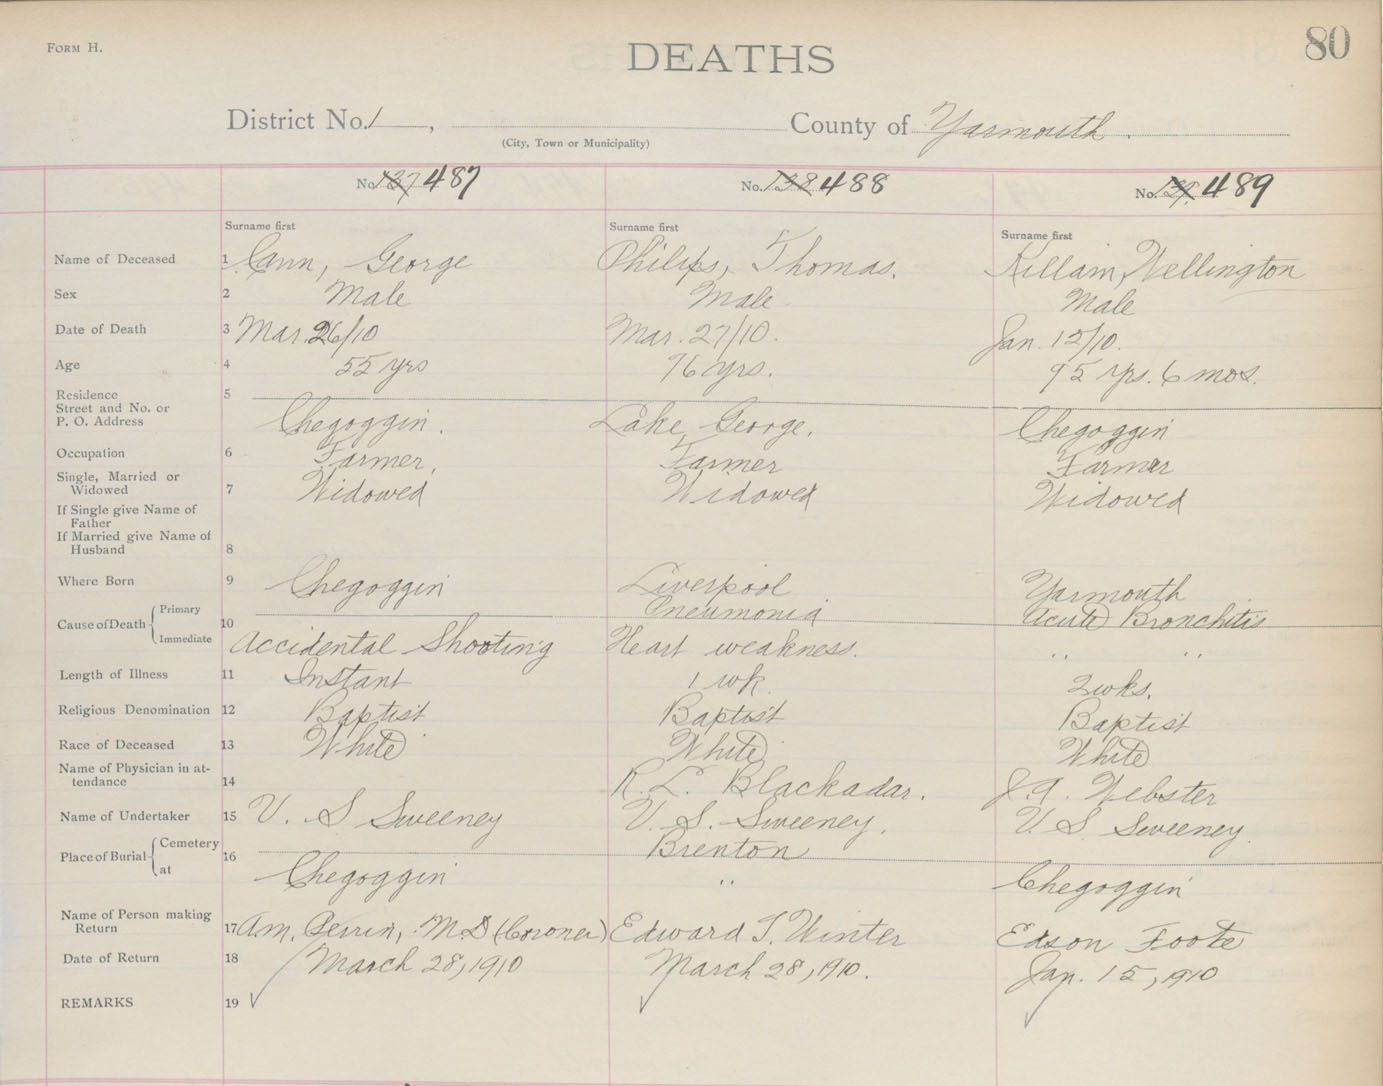 FORM H.
DEATHS
80
District No. 1, County of Yarmouth.
(City, Town or Municipality)
No. 137 487 No. 138 488 No. 139. 489
Surname first Surname first Surname first
Name of Deceased 1 Cann, George Philips, Thomas. Killam, Wellington
Sex 2 Male Male Male
Date of Death 3 Mar. 26/10 Mar. 27/10. Jan. 12/10.
Age 4 55 yrs 76 yrs. 95 yrs. 6 mos.
Residence 5
Street and No. or
P. O. Address Chegoggin. Lake George. Chegoggin
Occupation 6 Farmer, Farmer Farmer
Single, Married or
Widowed 7 Widowed Widowed Widowed
If Single give Name of
Father
If Married give Name of
Husband 8
Where Born 9 Chegoggin Liverpool Yarmouth
Cause of Death Primary 10 Pneumonia Acute Bronchitis
Immediate Accidental Shooting Heart weakness. " "
Length of Illness 11 Instant 1 wk. 2 wks.
Religious Denomination 12 Baptist Baptist Baptist
Race of Deceased 13 White White White
Name of Physician in at-
tendance 14 R. L. Blackadar. J. A. Webster
Name of Undertaker 15 V. S Sweeney V. S. Sweeney. V. S Sweeney.
Place of Burial Cemetery 16 Brenton
at Chegoggin " Chegoggin
Name of Person making
Return 17 A.m. Perrin, M.D (Coroner) Edward T. Winter Edson Foote
Date of Return 18 March 28, 1910 March 28, 1910. Jan. 15, 1910
REMARKS 19